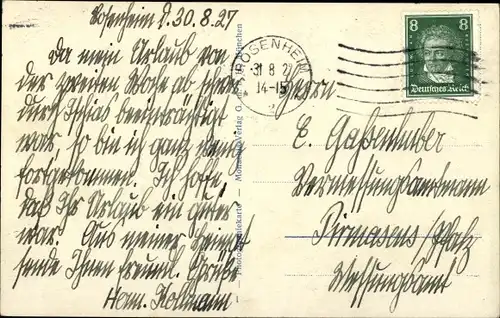 Rosenheim d. 30.8.27
Da mein Urlaub von
der zweiten Woche ab sehr
durch Ischias beeinträchtigt
war, so bin ich ganz wenig
fortgekommen. Ich hoffe,
daß Ihr Urlaub ein guter
war. Aus meiner Heimat
sende Ihnen freundl. Grüße
Herm. Kollmann
ROSENHEIM
31 8 27
14-15
2
8 8
Deutsches Reich
Herrn
E. Gaßenhuber
Vermessungsamtmann
Pirmasens/Pfalz
Messungsamt